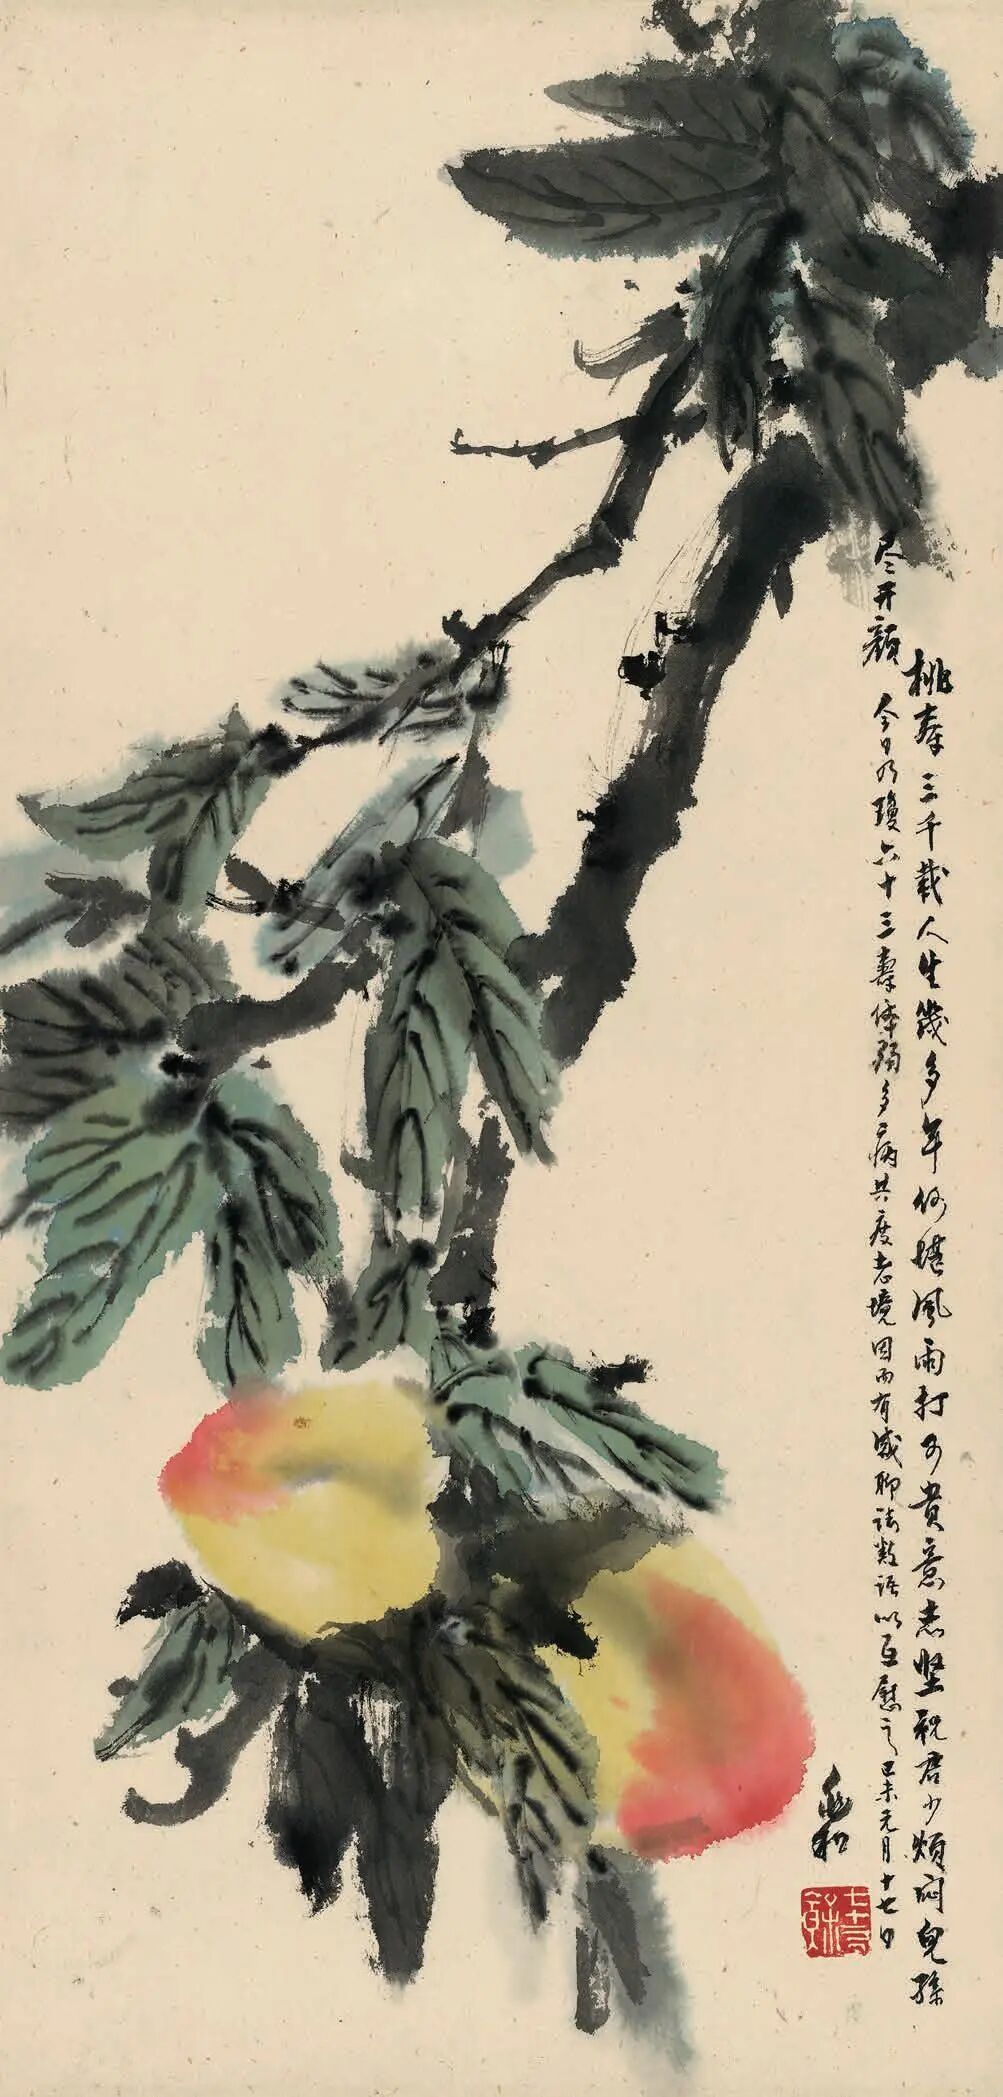 桃寿三千载人生几多年何堪风雨打可贵意志坚祝君少烦闷儿孙
尽开颜 今日乃琼六十三寿体弱多病共度老境因而有感聊诗数语以互慰之己未元月十七日
和